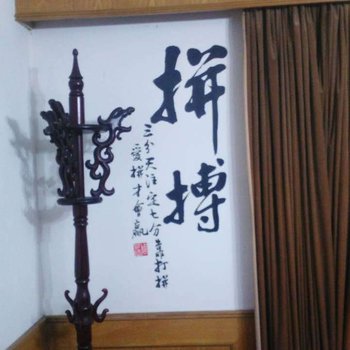 拼搏
三分天注定七分靠打拼
爱拼才會赢